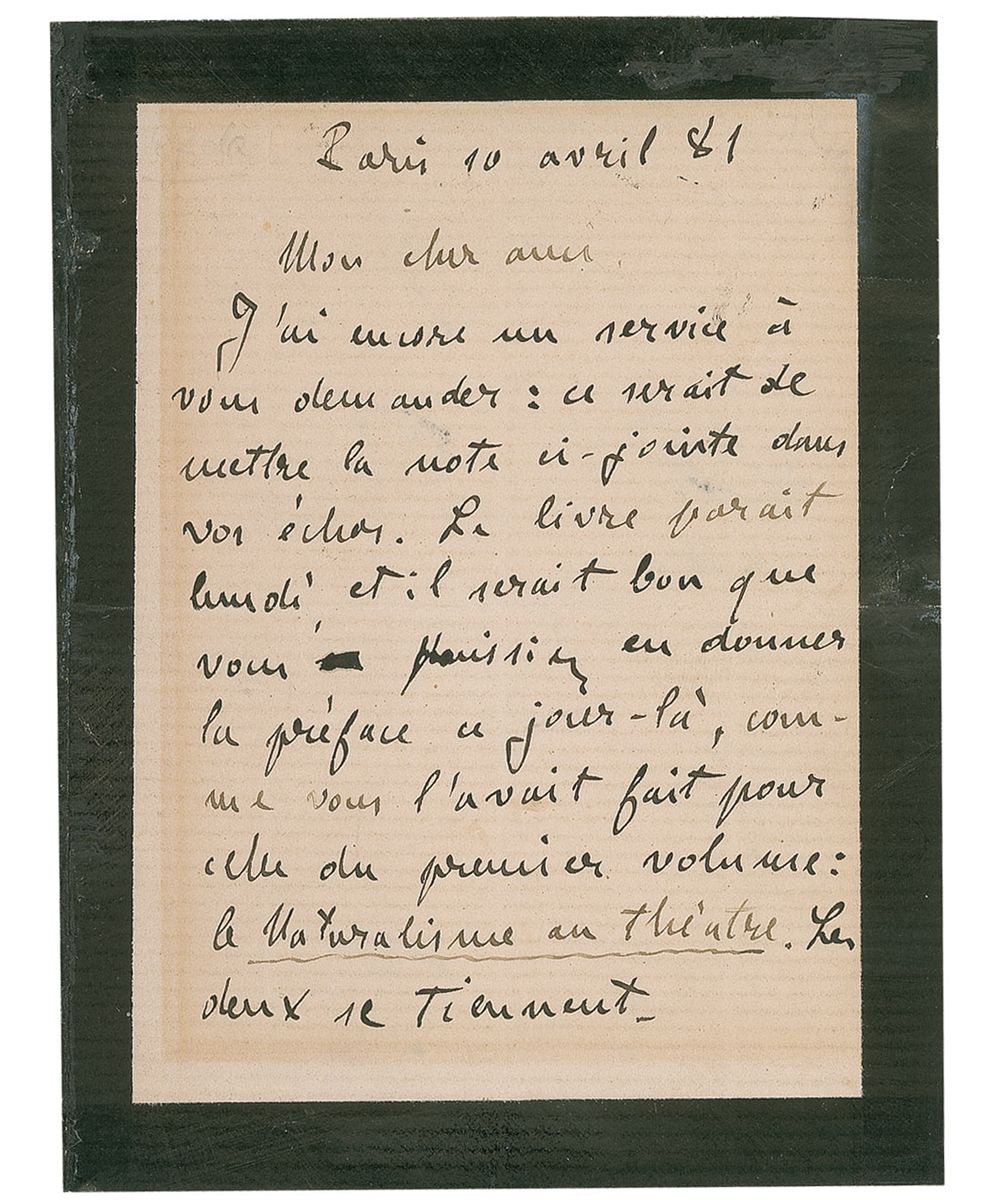 Paris 10 avril 81
Mon cher ami,
J'ai encore un service à
vous demander : ce serait de
mettre la note ci-jointe dans
vos échos. Le livre parait
lundi, et il serait bon que
vous puissiez en donner
la préface ce jour-là, com-
me vous l'avait fait pour
celle du premier volume :
le Naturalisme au théâtre. Les
deux se tiennent_